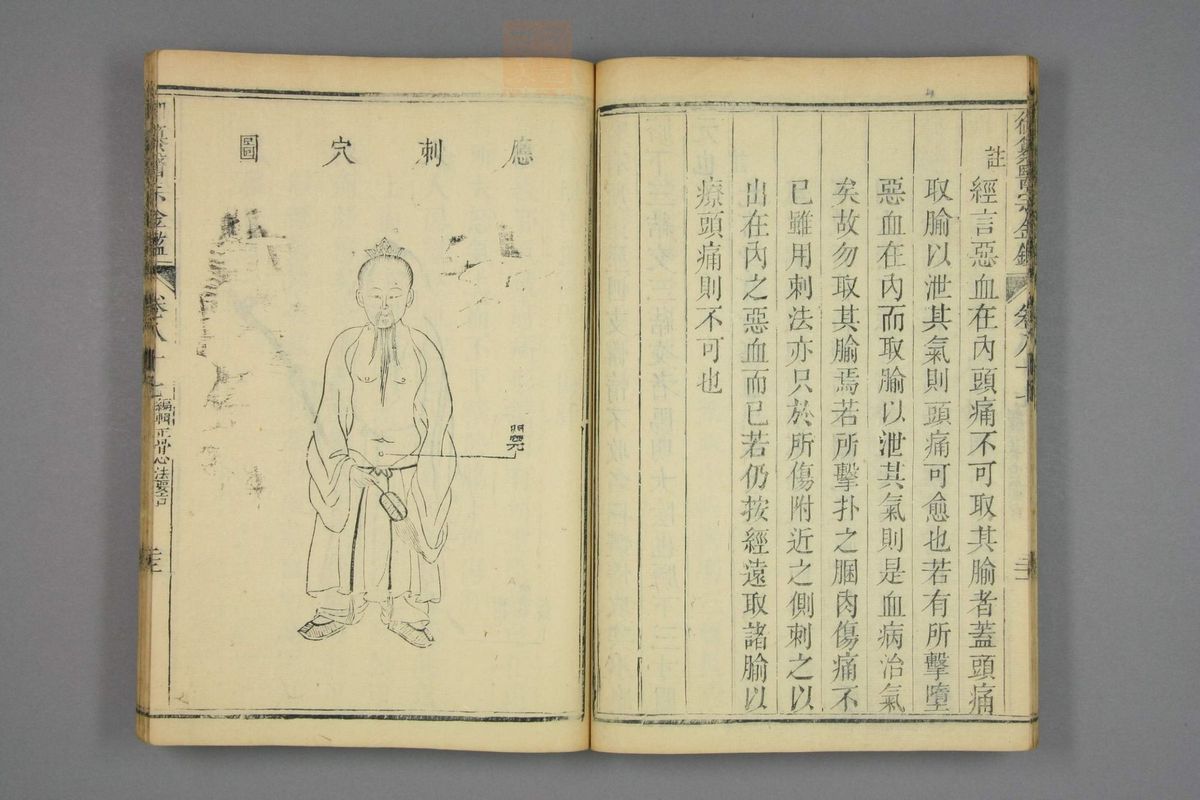 註
經言惡血在內頭痛不可取其腧者蓋頭痛
取腧以泄其氣則頭痛可愈也若有所擊墮
惡血在內而取腧以泄其氣則是血病治氣
矣故勿取其腧焉若所擊扑之膕肉傷痛不
已雖用刺法亦只於所傷附近之側刺之以
出在內之惡血而已若仍按經遠取諸腧以
療頭痛則不可也
應刺穴圖
關元
卷八十七
編輯正骨心法要旨